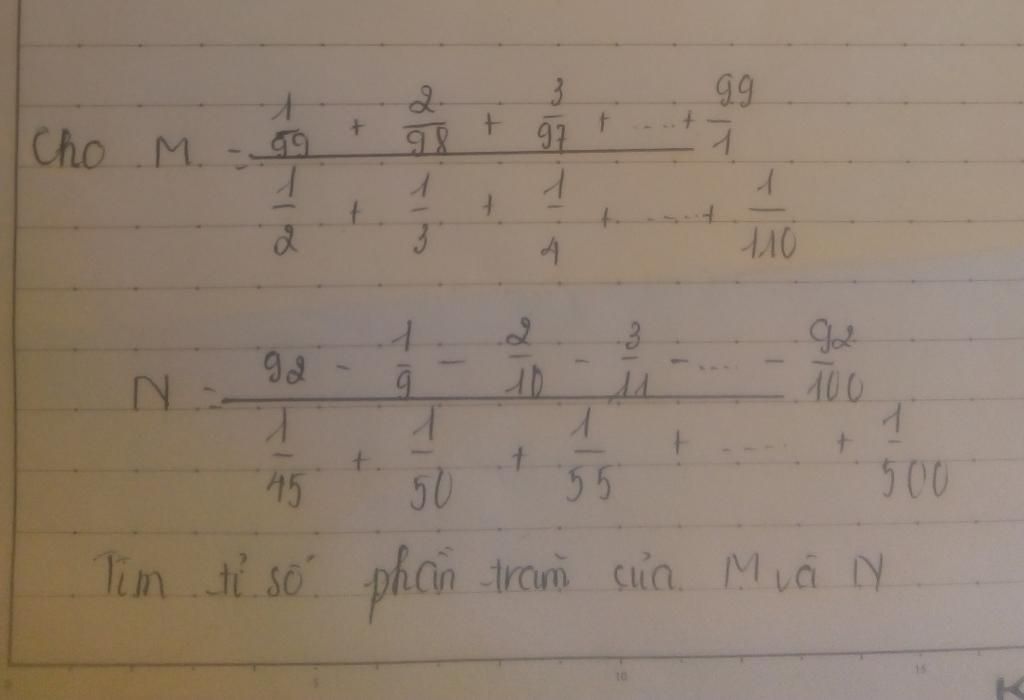 Cho M = \frac{\frac{1}{99} + \frac{2}{98} + \frac{3}{97} + ..... + \frac{99}{1}}{\frac{1}{2} + \frac{1}{3} + \frac{1}{4} + ..... + \frac{1}{110}}
N = \frac{92 - \frac{1}{9} - \frac{2}{10} - \frac{3}{11} - ..... - \frac{92}{100}}{\frac{1}{45} + \frac{1}{50} + \frac{1}{55} + ..... + \frac{1}{500}}
Tìm tỉ số phần trăm của M và N
5 10 15
K